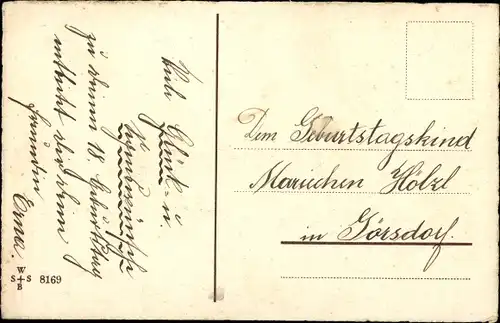 Viele Glück- u.
Segenswünsche
zu deinem 18. Geburtstag
entbietet dir deine
Freundin
Erna.
Dem Geburtstagskind
Mariechen Hölzl
in Görsdorf.
W
S S
B
8169